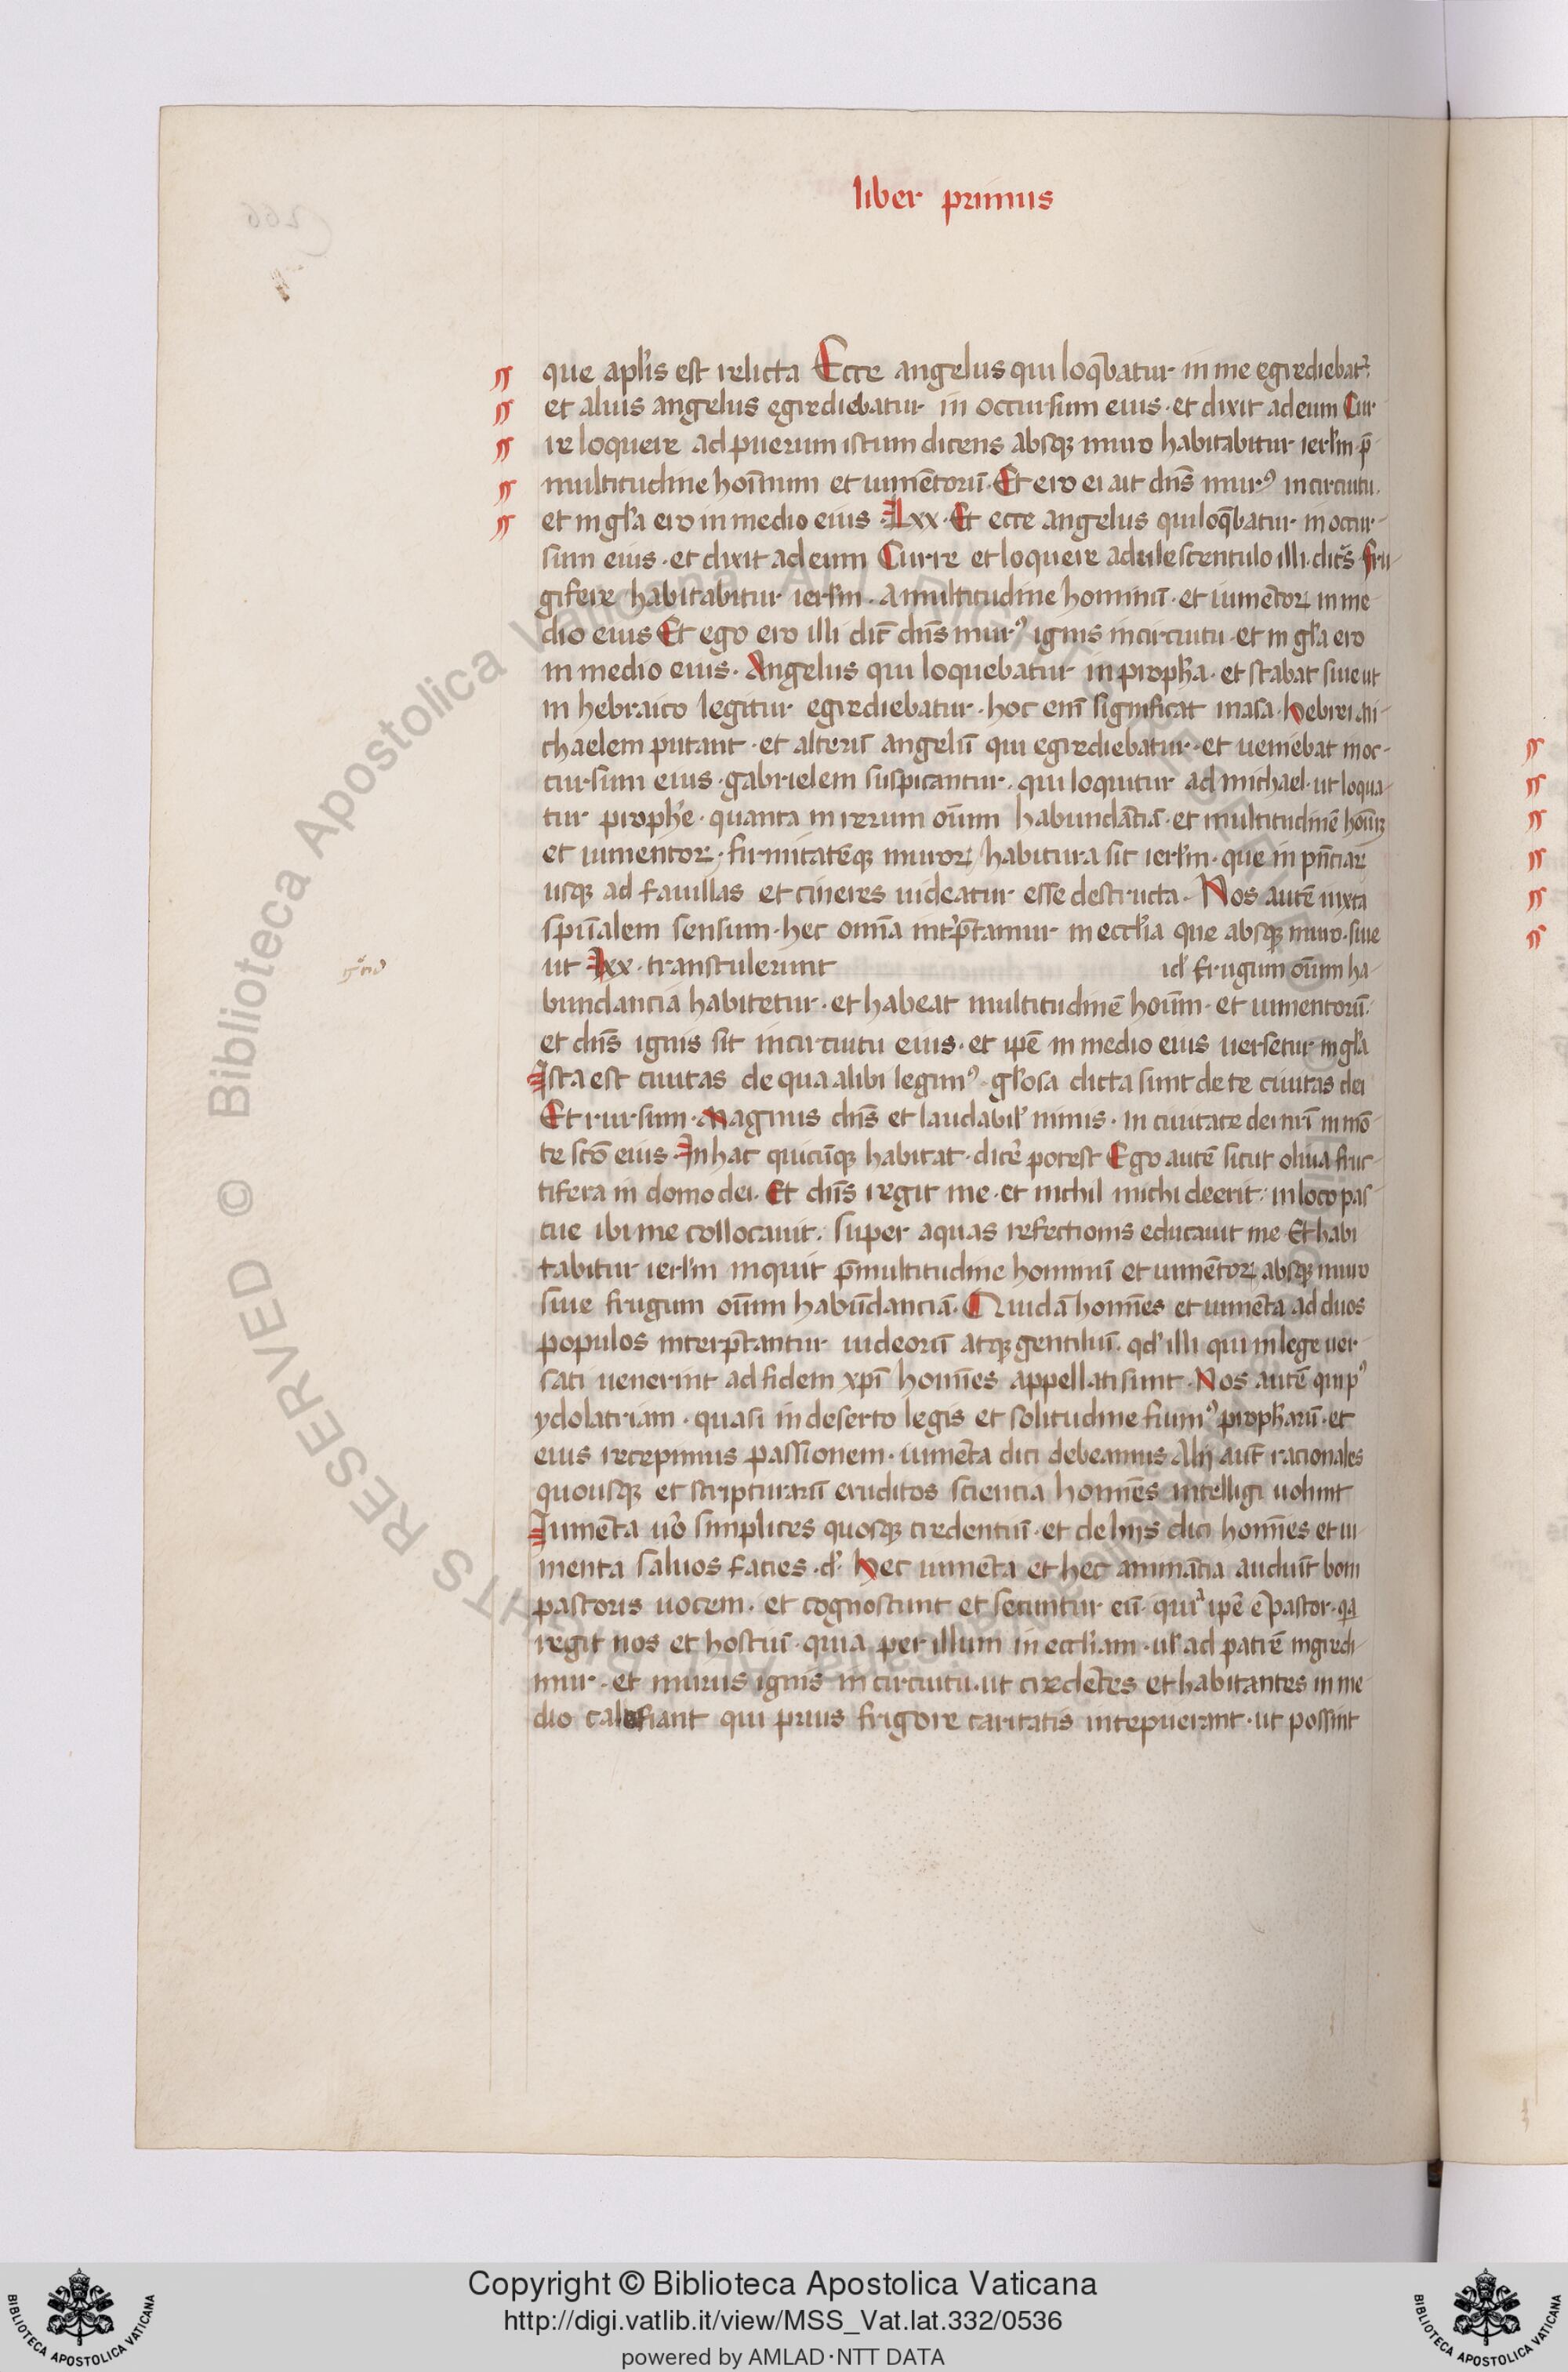 liber primus
que apl̄is est relicta Ecce angelus qui loq̄batur in me egrediebat᷒
et alius angelus egrediebatur in occursum eius · et dixit ad eum Cur
re loquere ad puerum istum dicens absqꝫ muro habitabitur ierl̄m · p̄
multitudine hoīnum et iumētorū · Et ero ei ait dn̄s murꝰ in circuitu ·
et in gl̄a ero in medio eius · Lxx · Et ecce angelus qui loq̄batur in occur
sum eius · et dixit ad eum Curre et loquere adulescentulo illi · dic̄s · fru
gifere habitabitur ierl̄m · a multitudine hominū · et iumētoꝝ in me
dio eius Et ego ero illi dic̄ dn̄s murꝰ ignis in circuitu · et in gl̄a ero
in medio eius · Angelus qui loquebatur in proph̄a · et stabat siue ut
in hebraico legitur egrediebatur · hoc enī significat iacsa · hebrei mi
chaelem putant · et alterū angelū qui egrediebatur · et ueniebat in oc
cursum eius · gabrielem suspicantur · qui loquitur ad michael · ut loqua
tur proph̄e · quanta in rerum oīum habundātiā · et multitudinē
et iumentoꝝ · firmitatēqꝫ muroꝝ habitura sit ierl̄m · que in pn̄ciaꝝ
usqꝫ ad fauillas et cineres uideatur esse destructa · Nos autē iuxta
spiūalem sensum · hec omīa int̄p̄tamur in eccl̄ia que absqꝫ muro · siue
ut Lxx · transtulerunt id̄ frugum oīum ha
bundancia habitetur · et habeat multitudinē hoīum · et iumentorū ·
et dn̄s ignis sit in circuitu eius · et ipē in medio eius uersetur in gl̄a
Ista est ciuitas de qua alibi legimꝰ · gl̄osa dicta sunt de te ciuitas dei
Et rursum · Magnus dn̄s et laudabil̄ nimis · in ciuitate dei nr̄i in mō
te sc̄o eius · In hac quicūqꝫ habitat · dicē potest Ego autē sicut oliua fruc
tifera in domo dei · Et dn̄s regit me · et nichil michi deerit · in loco pas
cue ibi me collocauit · super aquas refectionis educauit me · Et habi
tabitur ierl̄m inquit p̄ multitudine hominū et iumētoꝝ absqꝫ muro
siue frugum oīum habūdanciā · Quidā homīes et iumēta ad duos
populos interp̄tantur iudeorū atqꝫ gentiliū · qd̄ illi qui in lege uer
sati uenerint ad fidem xp̄i homīes appellati sunt · Nos autē qui pꝰ
ydolatriam · quasi in deserto legis et solitudine fiumꝰ proph̄arū · et
eius recepimus passionem · iumēta dici debeamus Alij aut̄ racionales
quousqꝫ et scripturarū eruditos sciencia homīes intelligi uolunt
Iumēta uō simplices quosqꝫ credentiū · et de hijs dici homīes et iu
menta saluos facies · d̄ · hec iumēta et hec animācia audiūt boni
pastoris uocem · et cognoscunt et secuntur eū · quiᵃ ipē ē pastor · qa
regit nos et hostiū · quia per illum in eccl̄iam · ul̄ ad patrē ingredi
mur · et murus ignis in circuitu · ut credētes et habitantes in me
dio calefiant qui prius frigore caritatis intepuerant · ut possint
Copyright © Biblioteca Apostolica Vaticana
http://digi.vatlib.it/view/MSS_Vat.lat.332/0536
powered by AMLAD·NTT DATA